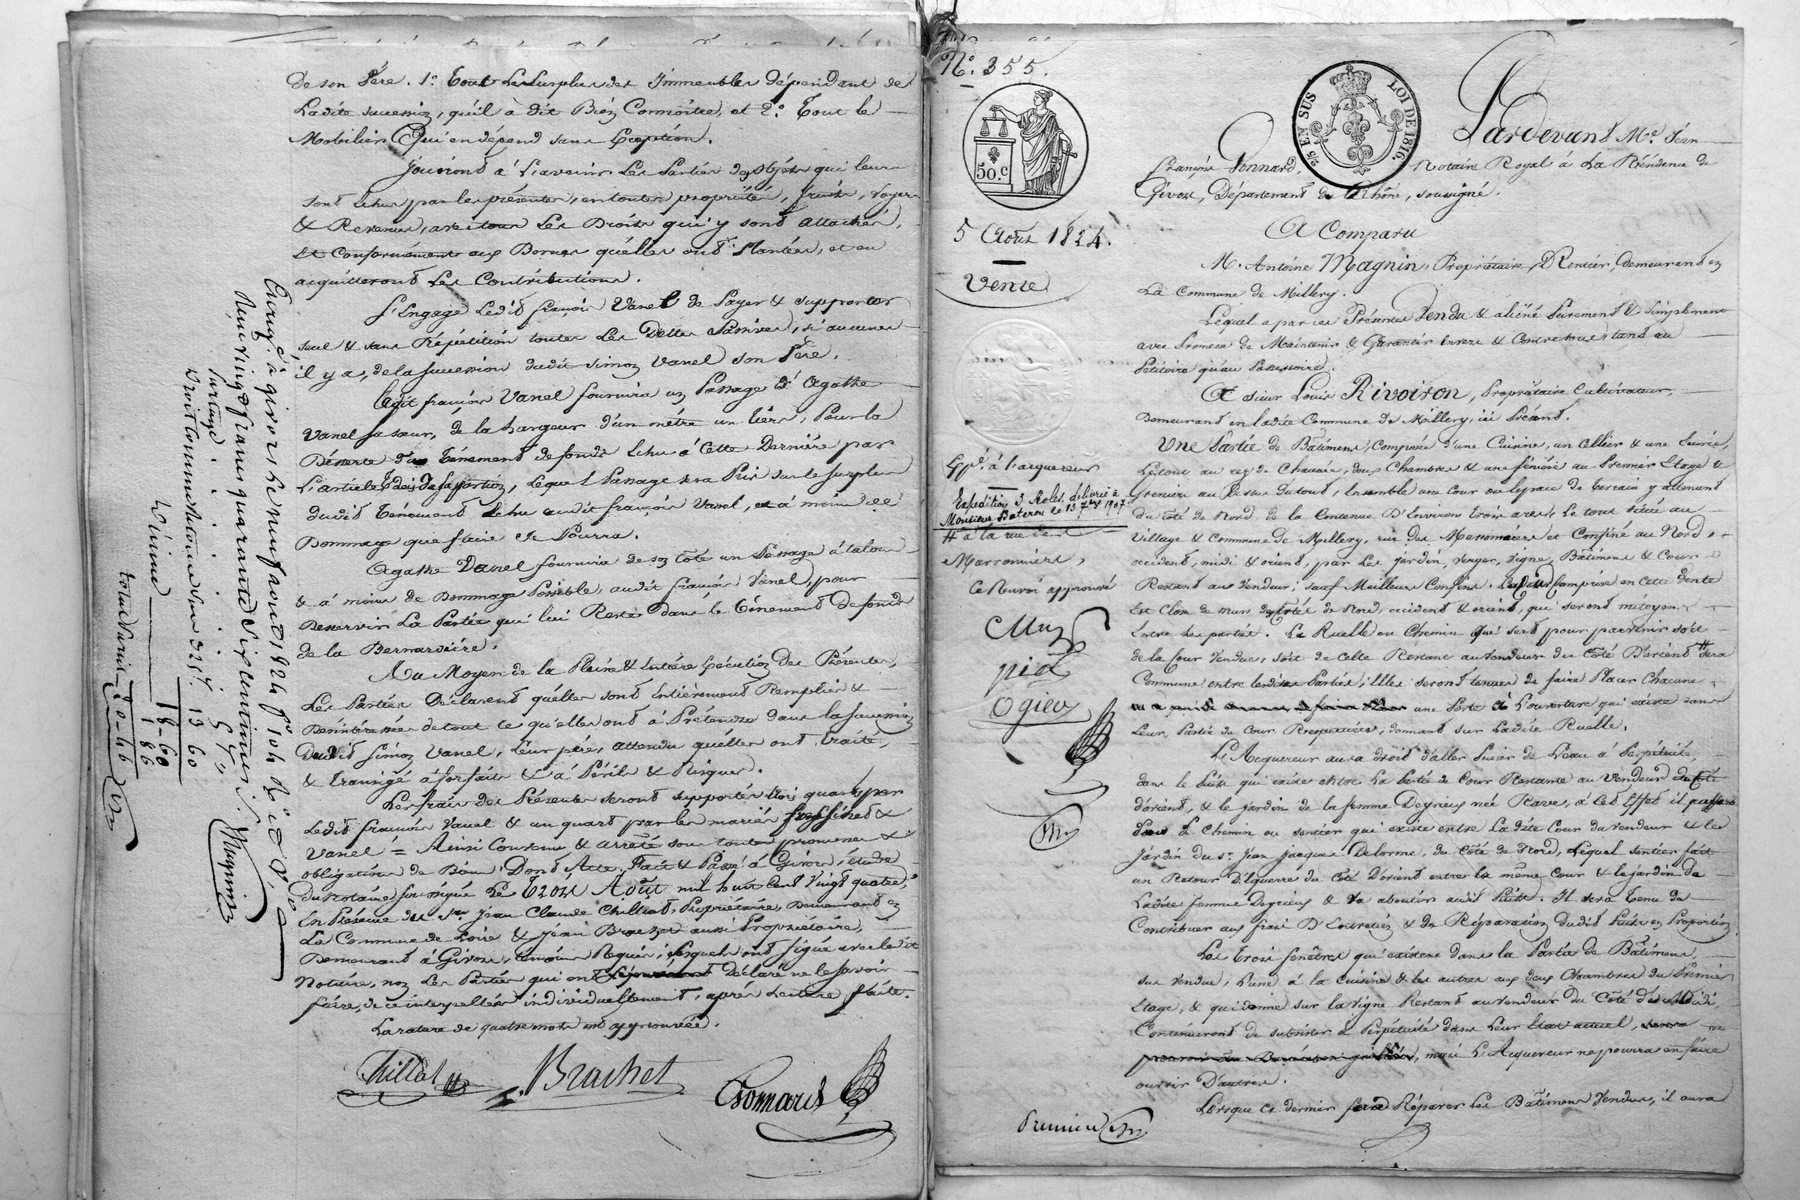 de son Père. 1.° Tout le surplus des Immeubles dépendant de
Ladite succession, qu'il a dit Bien Connoître, et 2.° Tout le
Mobilier qui en dépend sans Exception.
Jouiront à l'avenir Les Parties des objets qui leur
sont échus par les présentes, en toutes propriétés, fruits, Loyers
& Revenus, avec tous Les Droits qui y sont attachés,
et Conformément aux Bornes qu'elles ont Plantées, et en
acquitteront Les Contributions.
S'Engage Ledit françois Vanel de Payer & supporter
seul & sans Répétition toutes Les Dettes Passives, si aucunes
il y a, de la succession dudit simon Vanel son Père.
Ledit françois Vanel fournira un Passage à Agathe
Vanel sa sœur, de la Largeur d'un mètre un tiers, Pour la
Déserte du Tènement de fonds échu à Cette Dernière par
L'article de sa portion, Lequel Passage sera Pris sur le surplus
dudit Tènement échu audit françois Vanel, et à moins de
Dommage que faire se Pourra.
Agathe Vanel fournira de son Côté un Passage à talon
& à moins de Dommage Possible audit françois Vanel, pour
Desservir La Partie qui lui Reste dans le Tènement de fonds
de la Bernardière.
Au Moyen de la Pleine & Entière Exécution des Présentes,
Les Parties Déclarent qu'elles sont Entièrement Remplies &
Désintéressées de tout ce qu'elles ont à Prétendre dans la succession
Dudit simon Vanel, Leur père, attendu qu'elles ont traité,
& transigé à forfait & à Périls & Risques.
Les frais des Présentes seront supportés trois quarts par
Ledit françois Vanel & un quart par les mariés &
Vanel = Ainsi Convenu & arrêté sous toutes promesses &
obligation de Biens. Dont Acte, Fait & Passé à Givors, étude
du Notaire soussigné Le Trois Août mil huit Cent Vingt quatre,
En Présence des Srs Jean Claude Chillet, Propriétaire, Demeurant en
La Commune de Loire & Jean Brachet aussi Propriétaire,
Demeurant à Givors, témoins Requis, Lesquels ont signé avec ledit
Notaire, non Les Parties qui ont Déclaré ne le savoir
faire, de ce interpellées individuellement, après Lecture faite.
La rature de quatre mots est approuvée.
Chillet
Brachet
Enregé à givors Le neuf août 1824 f°
Reçu vingt francs quarante six centimes
Partage 5
Droit Comm
18-60
Dixième 1 86
total 20-46
N.° 355.
50.c
5 Août 1824.
Vente
Expé à l'acquéreur
Expédition 3 Roles délivré à
Monsieur Boteron le 13 7bre 1907
# à la rue des
Marronniers,
Ce Renvoi approuvé
2/5 EN SUS
LOI DE 1816.
Pardevant Me Jean
François Ponnard, Notaire Royal à La Résidence de
Givors, Département du Rhône, soussigné.
A Comparu
M. Antoine Magnin, Propriétaire, Rentier, demeurant en
La Commune de Millery.
Lequel a par ces Présentes Vendu & aliéné Purement & Simplement
avec Promesse de Maintenir & Garantir Envers & Contre tous, tant au
Pétitoire qu'au Possessoire.
A sieur Louis Rivoiron, Propriétaire Cultivateur,
Demeurant en ladite Commune de Millery, ici Présent.
Une Partie de Bâtiment, Composée d'une Cuisine, un Cellier & une Ecurie,
Le tout au rez de Chaussée, deux Chambres & une fenière au Premier Etage &
Grenier au Dessus du tout, Ensemble une Cour ou Espace de terrain y attenant
du Côté de Nord, de la Contenue D'Environ trois ares, Le tout situé au
Village & Commune de Millery, rue des Marronniers et Confiné au Nord,
occident, midi & orient, par Les jardin, Verger, Vigne, Bâtiment & Cour
Restant au Vendeur, sauf Meilleurs Confins. La Cour Comprise en cette Vente
Est Close de murs des Cotés de Nord, occident & orient, qui seront mitoyens
Entre les parties. La Ruelle ou Chemin qui sert pour parvenir soit
de la Cour Vendue, soit de Celle Restant au Vendeur du Côté D'orient # sera
Commune entre lesdites Parties; Elles seront tenues de faire Placer Chacune
une Porte à L'ouverture qui existe dans
Leur Partie de Cour Respective, donnant sur Ladite Ruelle.
L'Acquéreur aura droit d'aller Puiser de L'eau à Perpétuité,
dans le Puits qui existe entre La Partie de Cour Restante au Vendeur du Côté
d'orient, & le jardin de la femme Deyrieux née Rave, à Cet Effet il passera
dans Le Chemin ou sentier qui existe entre Ladite Cour du Vendeur & les
Jardin du sr Jean Jacques Delorme, du Côté de Nord, Lequel sentier fait
un Retour D'Equerre du Côté D'orient entre la même Cour & le jardin de
Ladite femme Deyrieux & Va aboutir audit Puits. Il sera tenu de
Contribuer aux frais D'Entretien & de Réparation dudit Puits en Proportion.
Les trois fenêtres qui existent dans la Partie de Bâtiment,
sus Vendue, L'une à la Cuisine & les autres aux deux Chambres du Premier
Etage, & qui donne sur la Vigne Restant au Vendeur du Côté de Midi,
Continueront de subsister à Perpétuité dans Leur Etat actuel,
mais L'Acquéreur ne pourra en faire
ouvrir D'autres.
Lorsque ce dernier fera Réparer Les Bâtimens Vendus, il aura